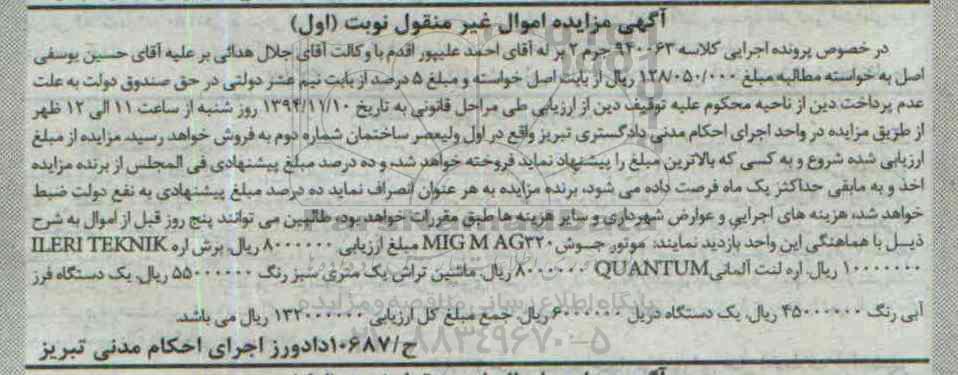 آگهی مزایده اموال غیر منقول نوبت (اول)
در خصوص پرونده اجرایی کلاسه ۹۴۰۰۶۳ جرم ۲ بر له آقای احمد علیپور اقدم با وکالت آقای جلال هدائی بر علیه آقای حسین یوسفی
اصل به خواسته مطالبه مبلغ ۱۲۸/۰۵۰/۰۰۰ ریال از بابت اصل خواسته و مبلغ ۵ درصد از بابت نیم عشر دولتی در حق صندوق دولت به علت
عدم پرداخت دین از ناحیه محکوم علیه توقیف دین از ارزیابی طی مراحل قانونی به تاریخ ۱۳۹۴/۱۱/۱۰ روز شنبه از ساعت ۱۱ الی ۱۲ ظهر
از طریق مزایده در واحد اجرای احکام مدنی دادگستری تبریز واقع در اول ولیعصر ساختمان شماره دوم به فروش خواهد رسید. مزایده از مبلغ
ارزیابی شده شروع و به کسی که بالاترین مبلغ را پیشنهاد نماید فروخته خواهد شد و ده درصد مبلغ پیشنهادی فی المجلس از برنده مزایده
اخذ و به مابقی حداکثر یک ماه فرصت داده می شود، برنده مزایده به هر عنوان انصراف نماید ده درصد مبلغ پیشنهادی به نفع دولت ضبط
خواهد شد، هزینه های اجرایی و عوارض شهرداری و سایر هزینه ها طبق مقررات خواهد بود، طالبین می توانند پنج روز قبل از اموال به شرح
ذیل با هماهنگی این واحد بازدید نمایند: موتور جوش MIG M AG۳۲۰ مبلغ ارزیابی ۸۰۰۰۰۰۰ ریال، برش اره ILERI TEKNIK
۱۰۰۰۰۰۰۰ ریال، اره لنت آلمانی QUANTUM ۸۰۰۰۰۰۰ ریال، ماشین تراش یک متری سبز رنگ ۵۵۰۰۰۰۰۰ ریال، یک دستگاه فرز
آبی رنگ ۴۵۰۰۰۰۰۰ ریال، یک دستگاه دریل ۶۰۰۰۰۰۰ ریال، جمع مبلغ کل ارزیابی ۱۳۲۰۰۰۰۰۰ ریال می باشد.
پایگاه اطلاع رسانی مناقصه و مزایده
ح/۱۰۶۸۷دادورز اجرای احکام مدنی تبریز
۸۸۳۴۹۶۷۰-۵